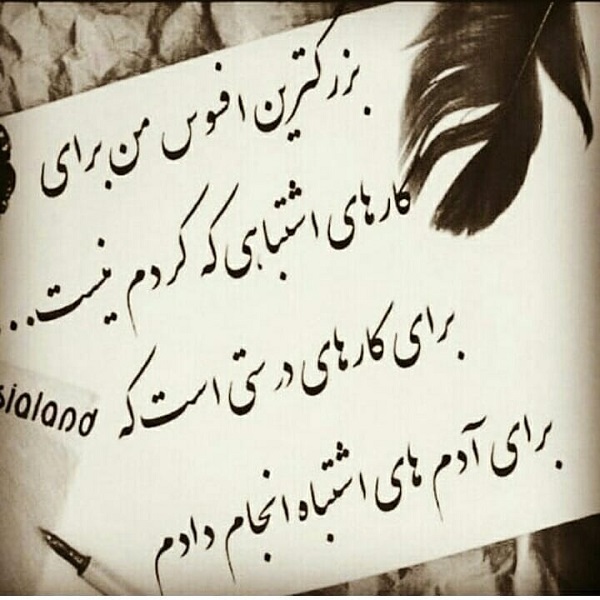 بزرگترین افسوس من برای
کارهای اشتباهی که کردم نیست...
برای کارهای درستی است که
sialand
برای آدم های اشتباه انجام دادم